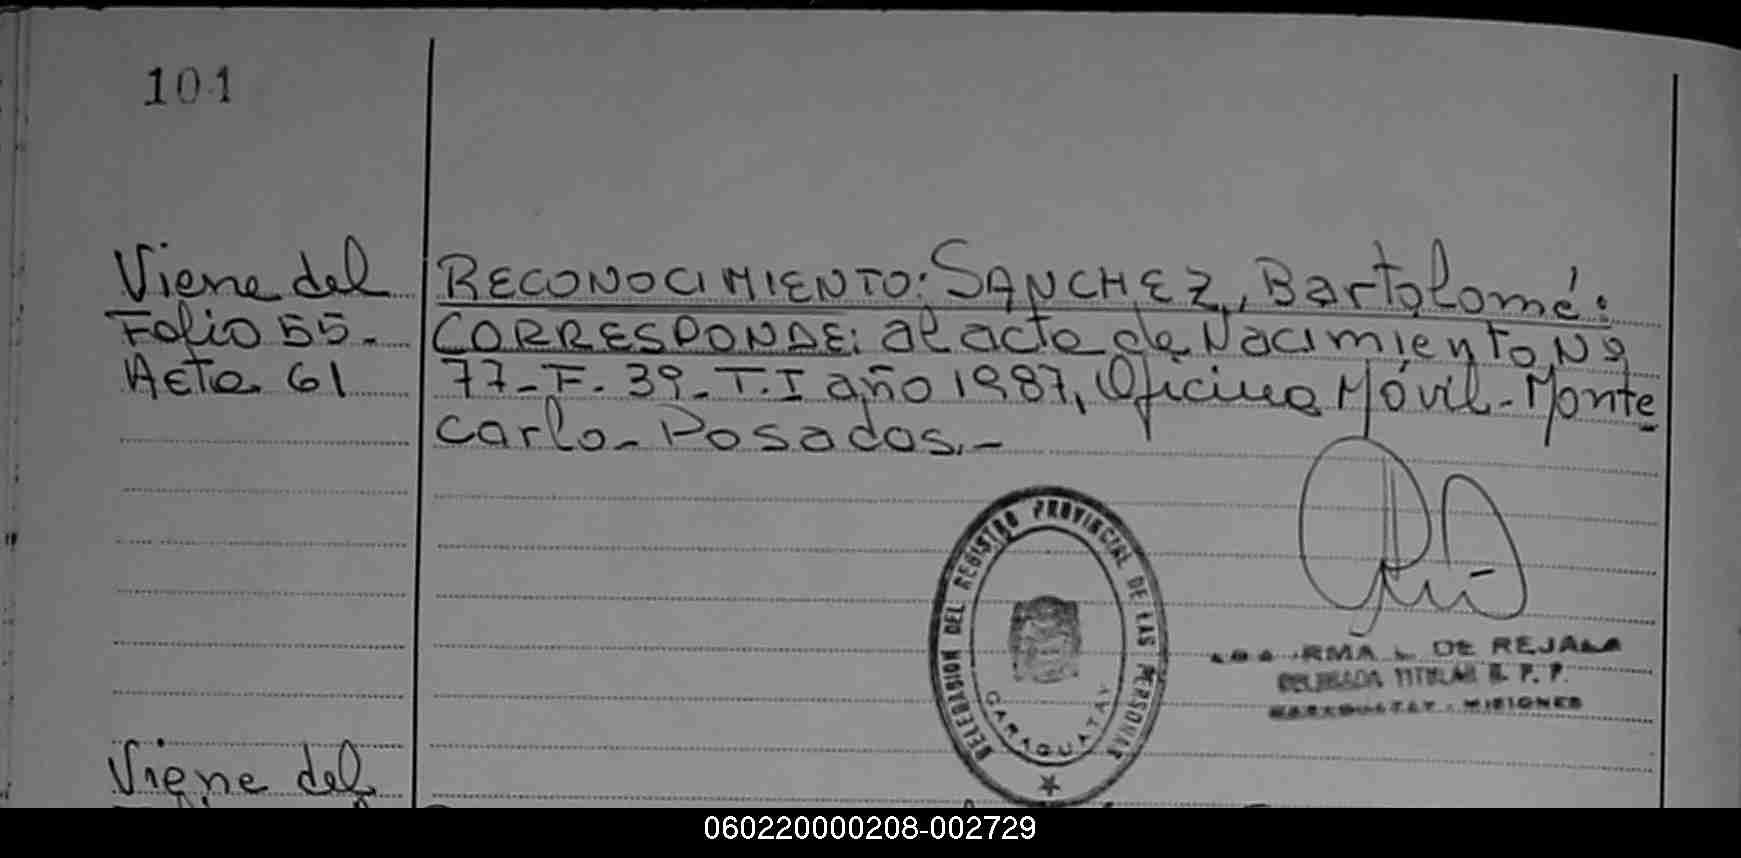 101
Viene del
Folio 55.
Acta 61
RECONOCIMIENTO: SANCHEZ, Bartolomé:
CORRESPONDE: al acta de Nacimiento Nº
77-F. 39-T.I año 1987, Oficina Móvil-Monte
carlo-Posadas.-
DELEGACION DEL REGISTRO PROVINCIAL DE LAS PERSONAS
CARAGUATAY
RMA L. DE REJALA
DELEGADA TITULAR R. P. P.
CARAGUATAY - MISIONES
Viene del
060220000208-002729